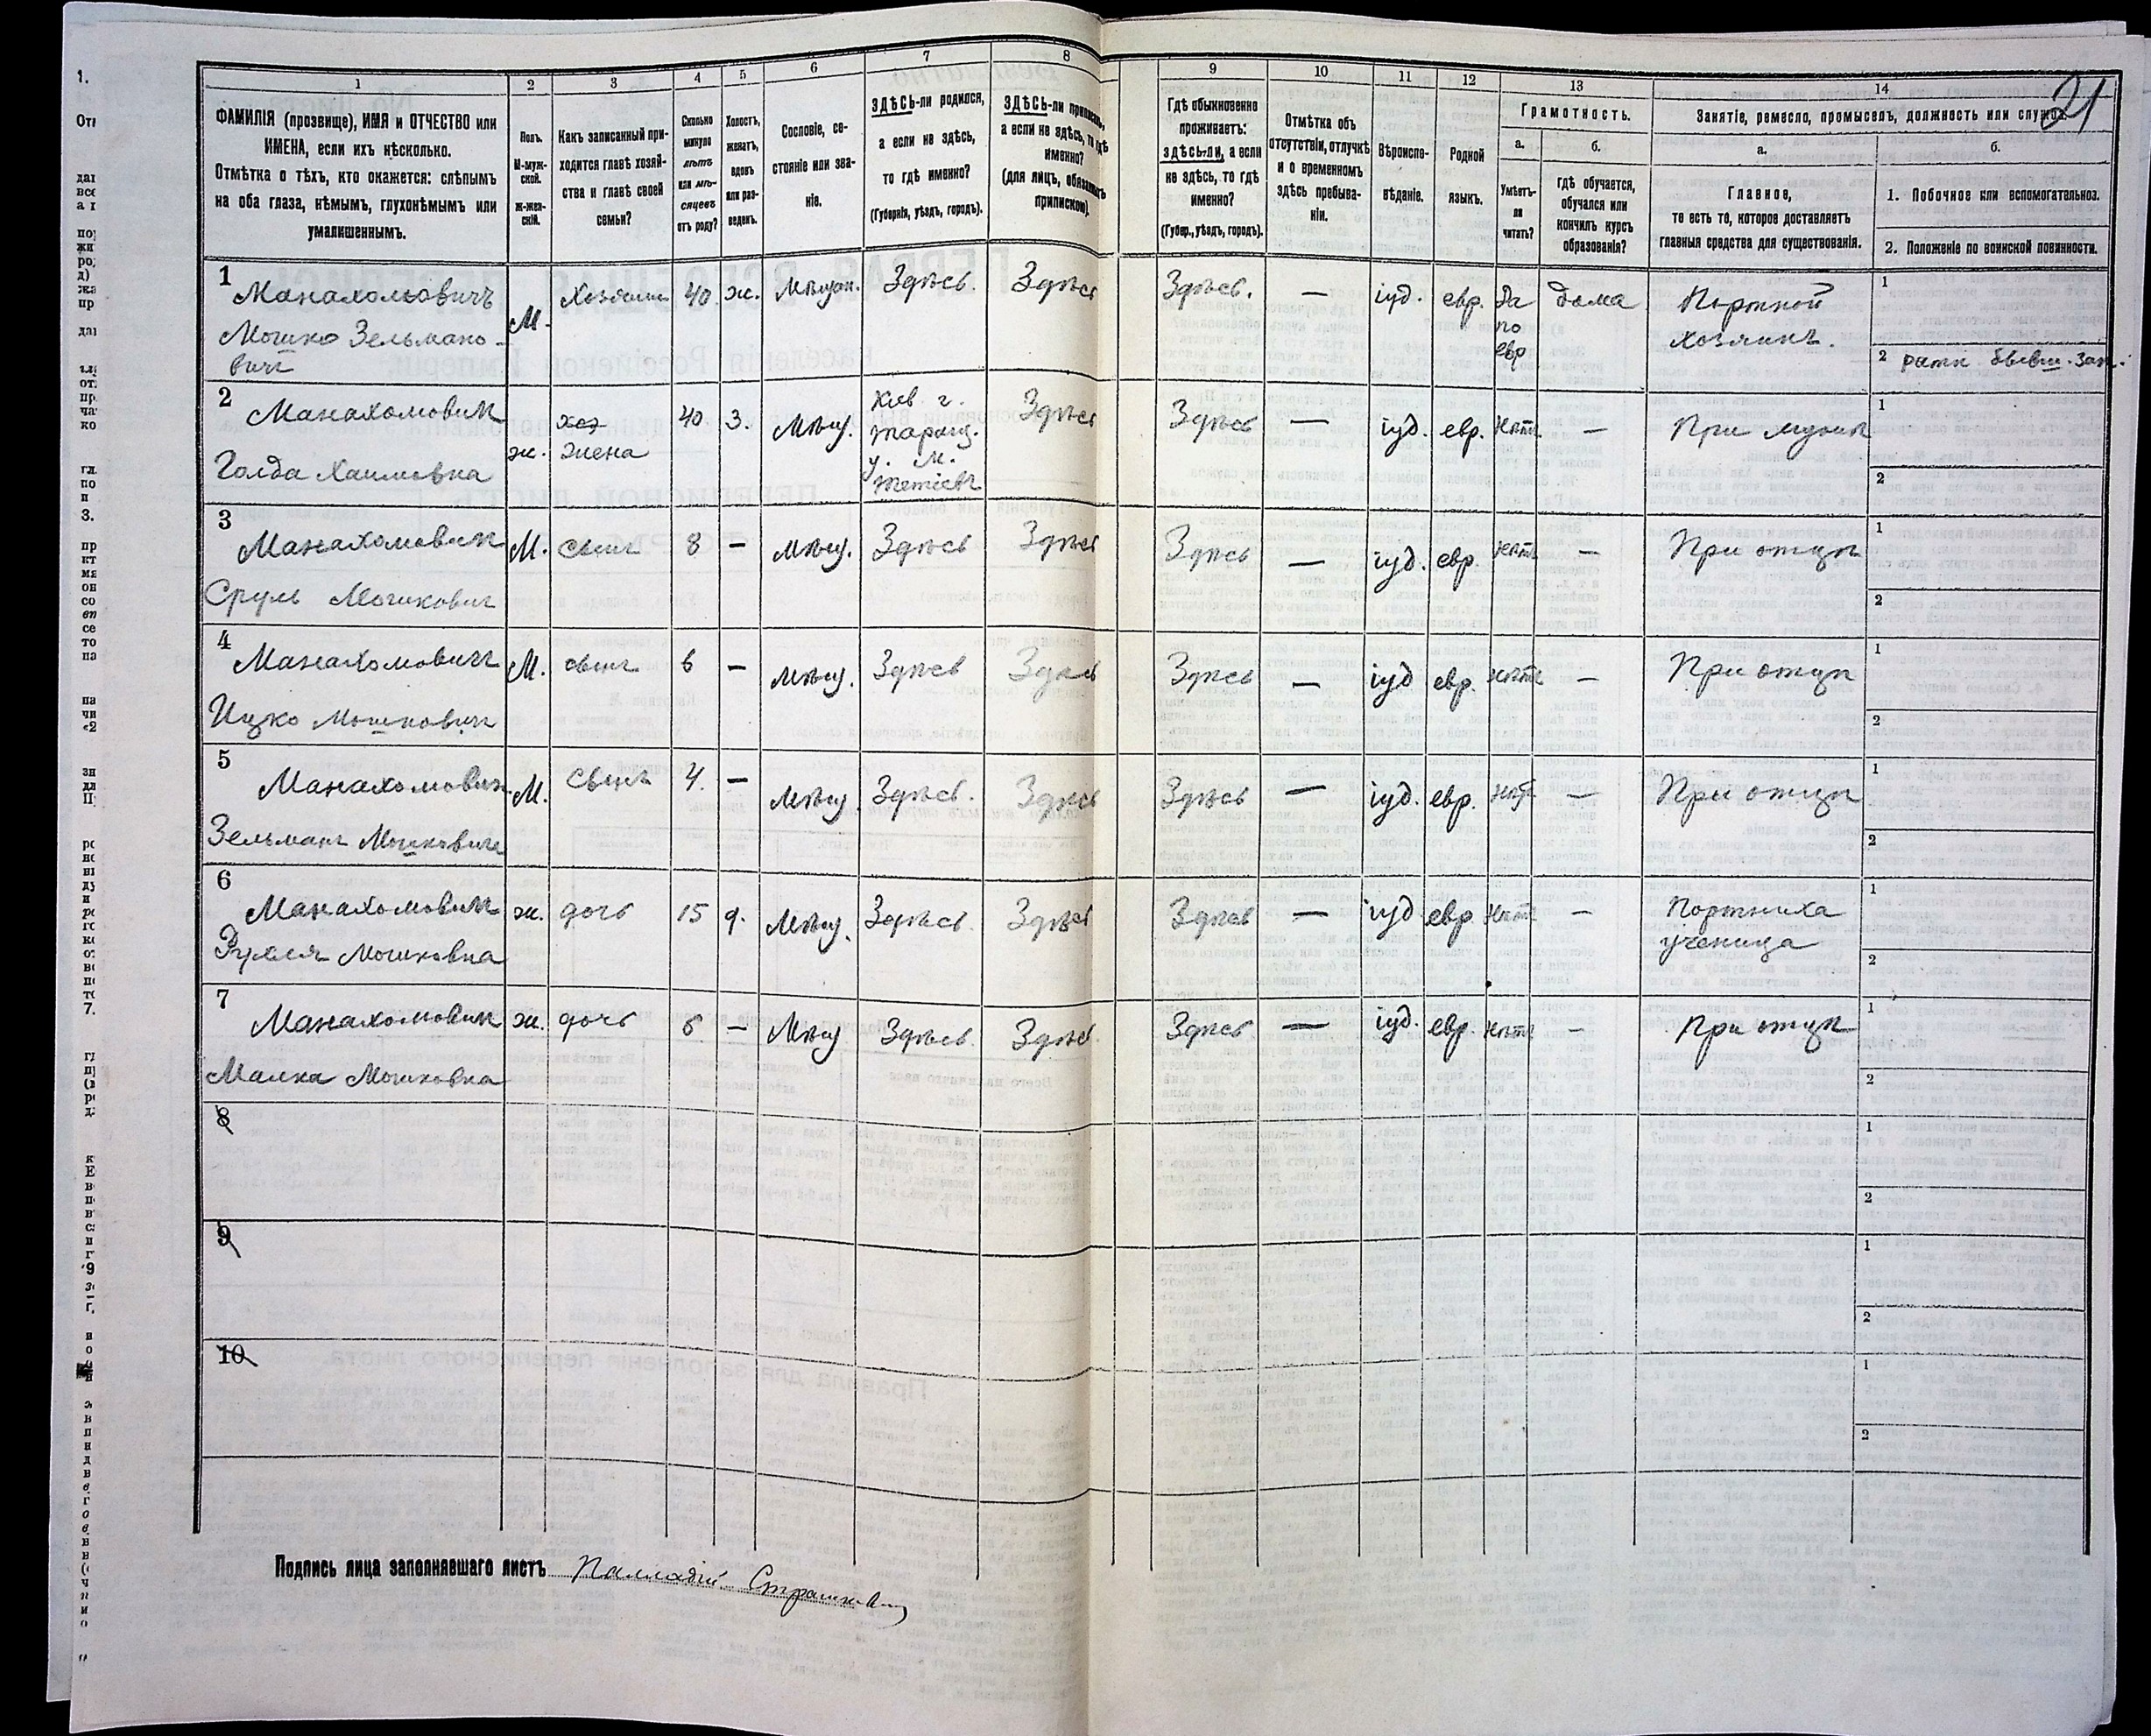 21
1
2
3
4
5
6
7
8
9
10
11
12
13
14
ФАМИЛІЯ (прозвище), ИМЯ и ОТЧЕСТВО или
ИМЕНА, если ихъ нѣсколько.
Отмѣтка о тѣхъ, кто окажется: слѣпымъ
на оба глаза, нѣмымъ, глухонѣмымъ или
умалишеннымъ.
Полъ.
М-муж-
ской.
Ж-жен-
скій.
Какъ записанный при-
ходится главѣ хозяй-
ства и главѣ своей
семьи?
Сколько
минуло
лѣтъ
или мѣ-
сяцевъ
отъ роду?
Холостъ,
женатъ,
вдовъ
или раз-
веденъ.
Сословіе, со-
стояніе или зва-
ніе.
ЗДѢСЬ-ли родился,
а если не здѣсь,
то гдѣ именно?
(Губернія, уѣздъ, городъ).
ЗДѢСЬ-ли приписанъ,
а если не здѣсь, то гдѣ
именно?
(для лицъ, обязанныхъ
припиской).
Гдѣ обыкновенно
проживаетъ:
здѣсь-ли, а если
не здѣсь, то гдѣ
именно?
(Губер., уѣздъ, городъ).
Отмѣтка объ
отсутствіи, отлучкѣ
и о временномъ
здѣсь пребыва-
ніи.
Вѣроиспо-
вѣданіе.
Родной
языкъ.
Грамотность.
а.
Умѣетъ-
ли
читать?
б.
гдѣ обучается,
обучался или
кончилъ курсъ
образованія?
Занятіе, ремесло, промыселъ, должность или служба.
а.
Главное,
то есть то, которое доставляетъ
главныя средства для существованія.
б.
1. Побочное или вспомогательное.
2. Положеніе по воинской повинности.
1 Манахомовичъ
Мошко Зельмано-
вичъ
М. Хозяинъ 40 ж. Мѣщан. Здѣсь. Здѣсь Здѣсь. — іуд. евр. Да
по
евр
дома Портной
хозяинъ.
1
2 ратн. бывш. зап.
2 Манахомовичъ
Голда Хаимовна
ж. хоз
жена
40 З. Мѣщ. Кіев г.
Таращ.
у. м.
Тетіевъ
Здѣсь Здѣсь — іуд. евр. нѣтъ — При мужѣ
1
2
3 Манахомовичъ
Сруль Мошковичъ
М. сынъ 8 — Мѣщ. Здѣсь Здѣсь Здѣсь — іуд. евр. нѣтъ — При отцѣ
1
2
4 Манахомовичъ
Ицко Мошковичъ
М. сынъ 6 — Мѣщ. Здѣсь Здѣсь Здѣсь — іуд евр. нѣтъ — При отцѣ
1
2
5 Манахомовичъ
Зельманъ Мошковичъ
М. сынъ 4. — Мѣщ. Здѣсь. Здѣсь Здѣсь — іуд. евр. нѣтъ — При отцѣ
1
2
6 Манахомовичъ
Рухля Мошковна
ж. дочь 15 д. Мѣщ. Здѣсь. Здѣсь Здѣсь — іуд евр нѣтъ — Портниха
ученица
1
2
7 Манахомовичъ
Малка Мошковна
ж. дочь 6 — Мѣщ Здѣсь Здѣсь Здѣсь — іуд. евр. нѣтъ — При отцѣ
1
2
8
1
2
9
1
2
10
1
2
Подпись лица заполнявшаго листъ Палладій